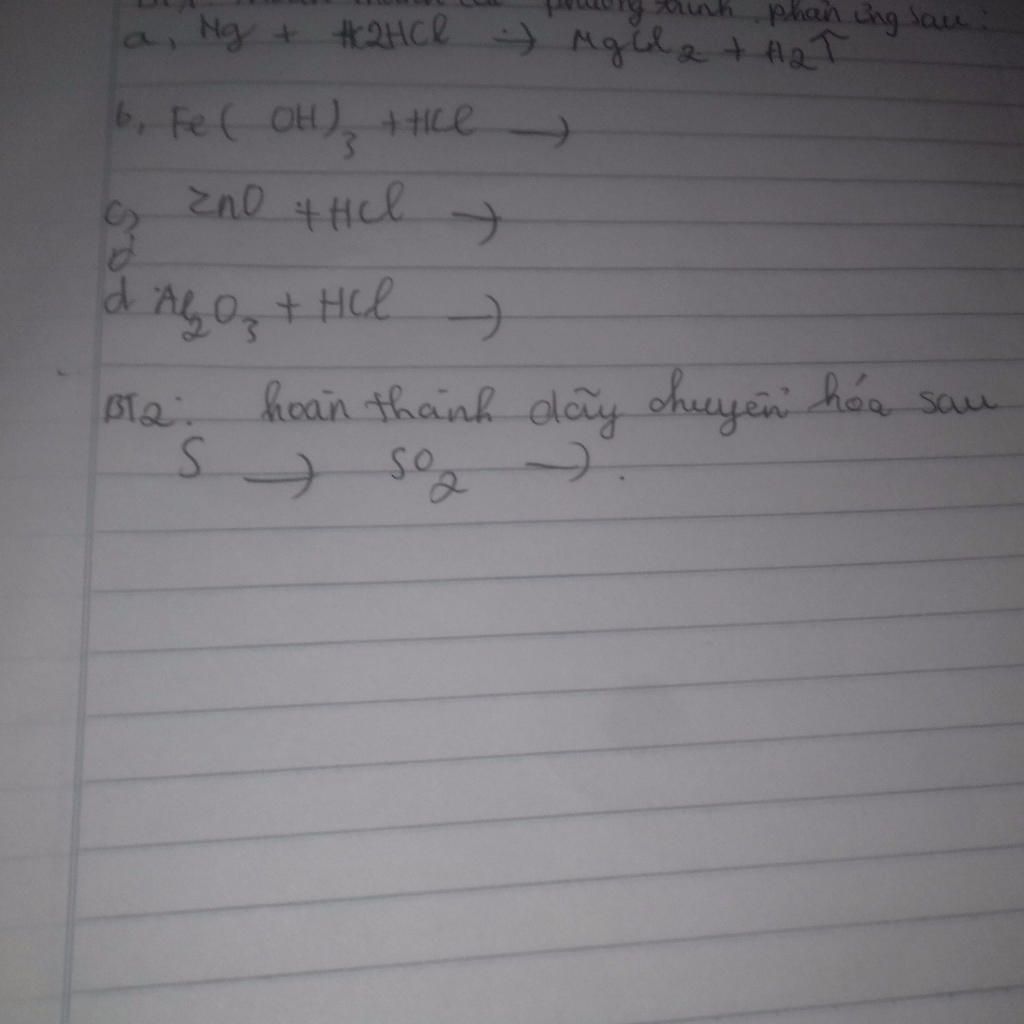 phương trình phản ứng sau:
a, Mg + 2HCl → MgCl2 + H2↑
b, Fe(OH)3 + HCl →
c, ZnO + HCl →
d
d Al2O3 + HCl →
BT2: hoàn thành dãy chuyển hóa sau
S → SO2 → .